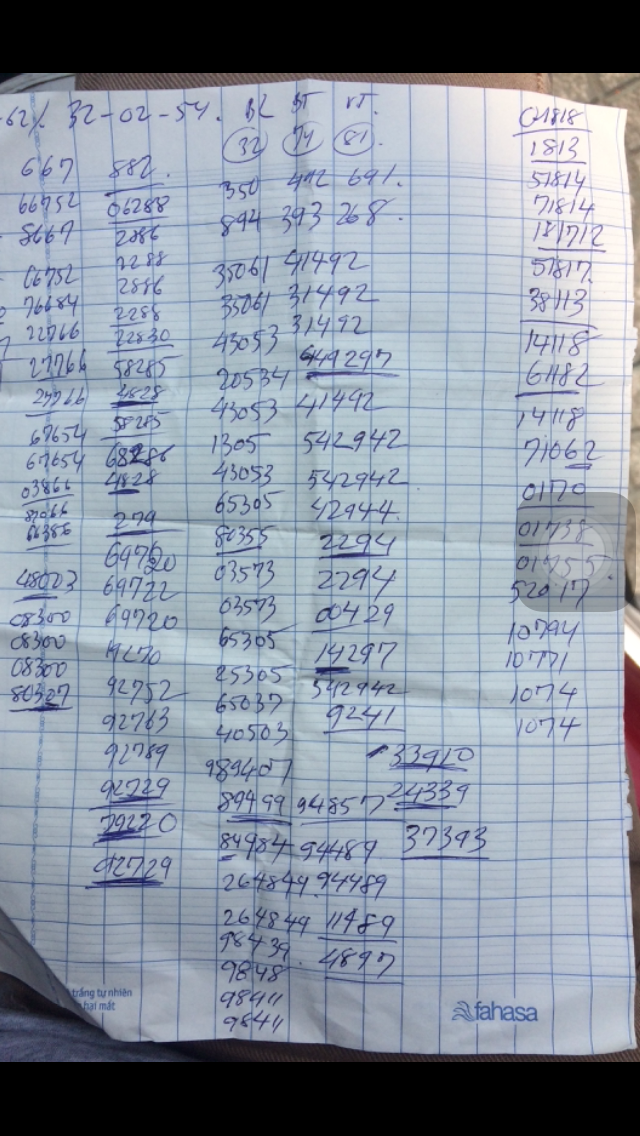 -62/. 32-02-54. BL BT VT.
32 74 81.
667
66752
8667
06752
76684
22766
27766
27766
67654
67654
03866
87066
66386
48003
08300
08300
08300
80307
882.
06288
2286
2288
2886
2288
22830
58285
4828
58285
68286
4828
279
69720
69722
69720
19270
92752
92763
92789
92729
79220
92729
350 412 691.
894 393 268.
35061 41492
35061 31492
43053 31492
20534 449297
43053 41492
1305 542942
43053 542942
65305 42944
80355 2294
03573 2294
03573 00429
65305 14297
25305 542942
65037 9241
40503
989407
89499 94857
84984 94489
264849 94489
264849 11489
98439 4897
9848
98411
98411
33910
24339
37393
01818
1813
51814
71814
181712
51817
38113
14118
61182
14118
71062
0170
01738
01755
52017
10794
10771
1074
1074
trắng tự nhiên
hại mắt
fahasa